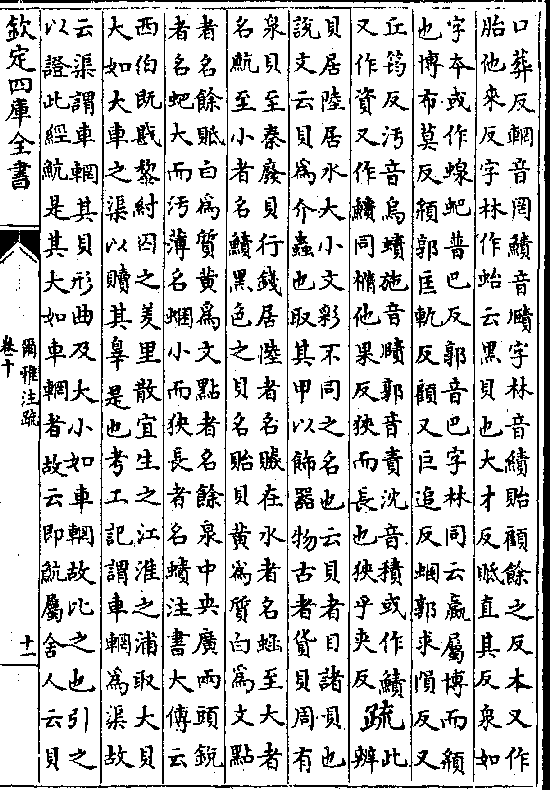 口葬反輞音罔鰿音賾字林音績貽顧餘之反本又作
胎他來反字林作蛤云黑貝也大才反貾直其反泉如
字本或作線蚆普巴反郭音巴字林同云蠃屬博而頯
也博布莫反頯郭匡軌反顧又巨追反蜠郭求隕反又
丘筠反汚音烏蟦施音賾郭音責沈音積或作鰿
又作資又作鱝同楕他果反狹而長也狹乎夾反
疏此辨
貝居陸居水大小文彩不同之名也云貝者目諸貝也
說文云貝為介蟲也取其甲以飾器物古者貨貝周有
泉貝至秦廢貝行錢居陸者名贆在水者名蜬至大者
名魧至小者名鰿黑色之貝名貽貝黄為質白為文點
者名餘貾白為質黄為文點者名餘泉中央廣兩頭銳
者名蚆大而汚薄名蜠小而狹長者名蟦注書大傳云
西伯既戡黎紂囚之羑里散宜生之江淮之浦取大貝
大如大車之渠以贖其辠是也考工記謂車輞為渠故
云渠謂車輞其貝形曲及大小如車輞故比之也引之
以證此經魧是其大如車輞者故云即魧屬舍人云貝
欽定四庫全書
爾雅注疏
卷十
十一